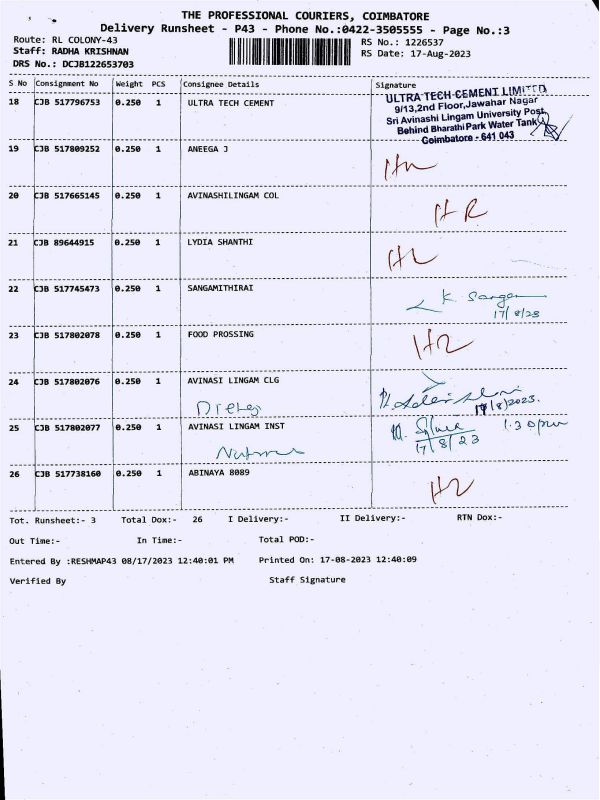 THE PROFESSIONAL COURIERS, COIMBATORE
Delivery Runsheet - P43 - Phone No.:0422-3505555 - Page No.:3
Route: RL COLONY-43
RS No.: 1226537
Staff: RADHA KRISHNAN
RS Date: 17-Aug-2023
DRS No.: DCJB122653703
S No Consignment No Weight PCS Consignee Details Signature
18 CJB 517796753 0.250 1 ULTRA TECH CEMENT
ULTRA TECH CEMENT LIMITED
9/13,2nd Floor,Jawahar Nagar
Sri Avinashi Lingam University Post,
Behind Bharathi Park Water Tank
Coimbatore - 641 043
19 CJB 517809252 0.250 1 ANEEGA J
20 CJB 517665145 0.250 1 AVINASHILINGAM COL
HR
21 CJB 89644915 0.250 1 LYDIA SHANTHI
22 CJB 517745473 0.250 1 SANGAMITHIRAI
K. Sangam
17/8/23
23 CJB 517802078 0.250 1 FOOD PROSSING
24 CJB 517802076 0.250 1 AVINASI LINGAM CLG
17/8/2023.
25 CJB 517802077 0.250 1 AVINASI LINGAM INST
1.30pm
17/8/23
26 CJB 517738160 0.250 1 ABINAYA 8089
Tot. Runsheet:- 3 Total Dox:- 26 I Delivery:- II Delivery:- RTN Dox:-
Out Time:- In Time:- Total POD:-
Entered By :RESHMAP43 08/17/2023 12:40:01 PM Printed On: 17-08-2023 12:40:09
Verified By Staff Signature